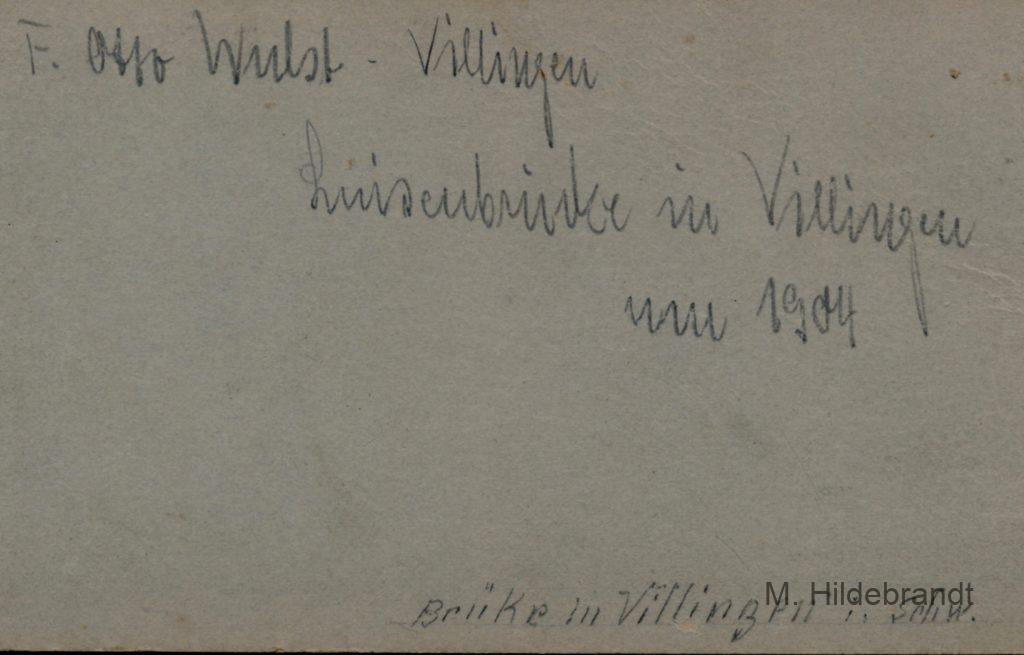 F. Otto Wulst - Villingen
Luisenbrücke in Villingen
um 1904
M. Hildebrandt
Brüke in Villingen i. Schw.